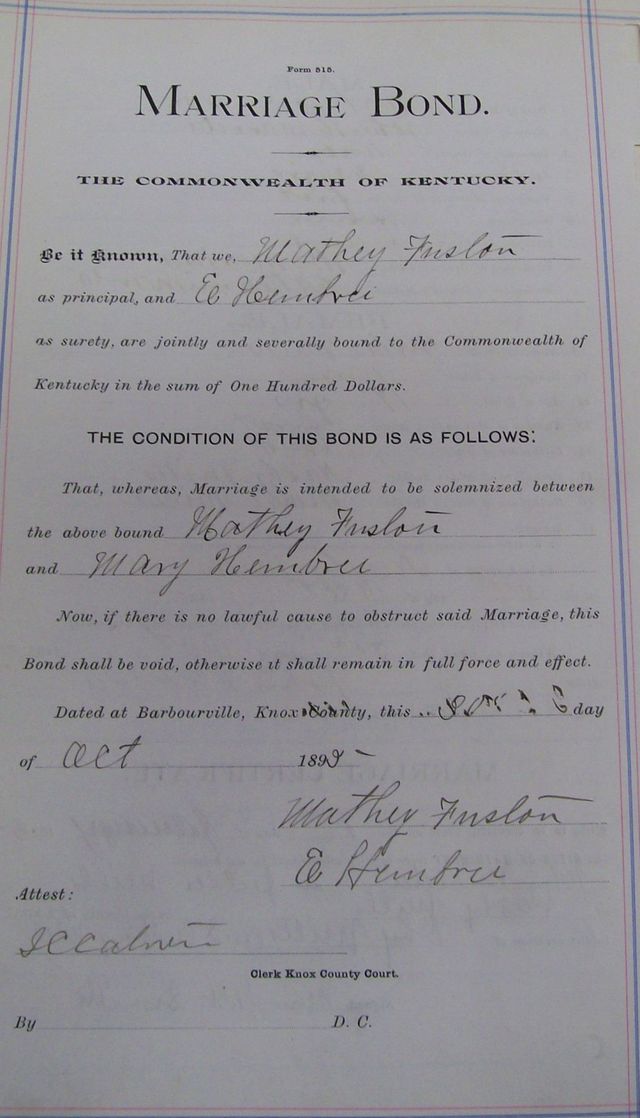 Form 515.
MARRIAGE BOND.
THE COMMONWEALTH OF KENTUCKY.
Be it Known, That we, Mathey Fuston
as principal, and E Hembree
as surety, are jointly and severally bound to the Commonwealth of
Kentucky in the sum of One Hundred Dollars.
THE CONDITION OF THIS BOND IS AS FOLLOWS:
That, whereas, Marriage is intended to be solemnized between
the above bound Mathey Fuston
and Mary Hembree
Now, if there is no lawful cause to obstruct said Marriage, this
Bond shall be void, otherwise it shall remain in full force and effect.
Dated at Barbourville, Knox County, this day
of Oct 189
Mathey Fuston
E Hembree
Attest:
Clerk Knox County Court.
By D. C.